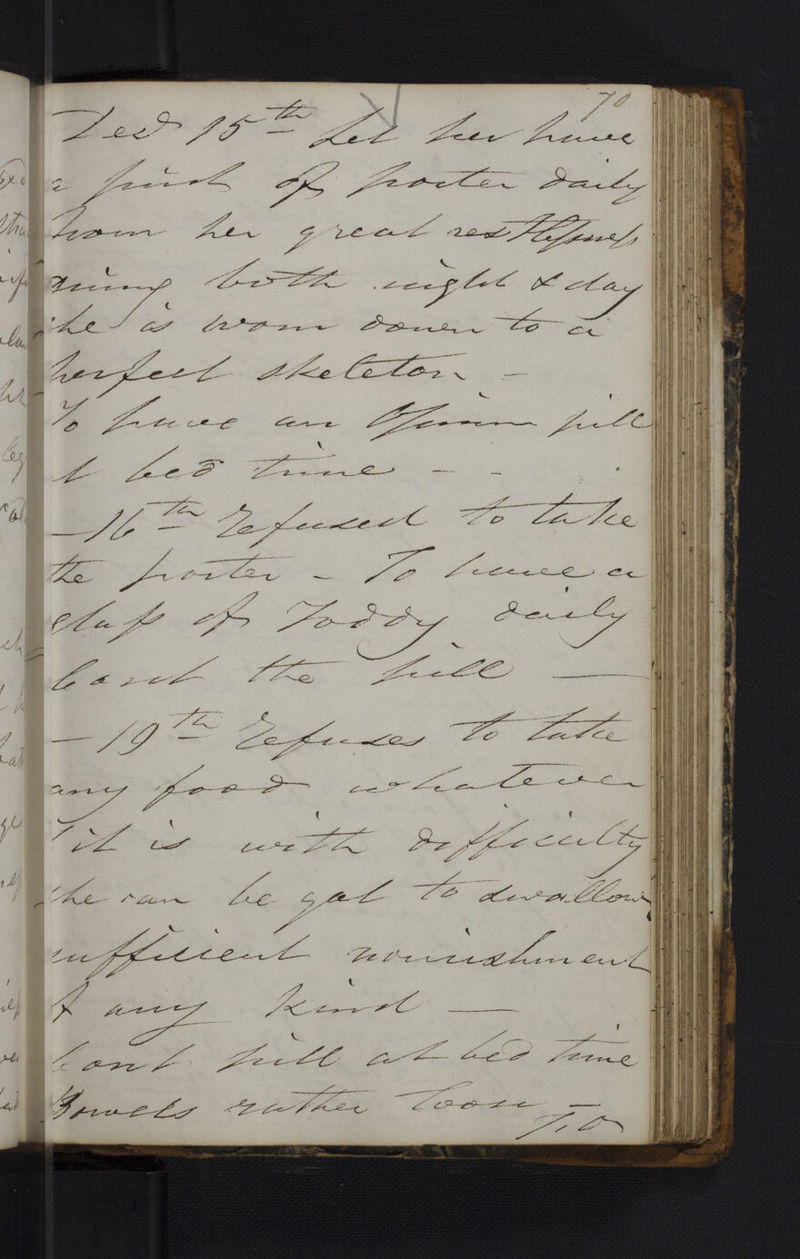 70
Dec 15th Let her have
a pint of porter daily
from her great restlessness
during both night & day
she is worn down to a
perfect skeleton -
To have an Opium pill
at bed time - -
- 16th Refused to take
the porter - To have a
glass of Toddy daily
Cont the pill —
- 19th Refuses to take
any food whatever
it is with difficulty
she can be got to swallow
sufficient nourishment
of any kind —
Cont pill at bed time
Bowels rather loose
T.O